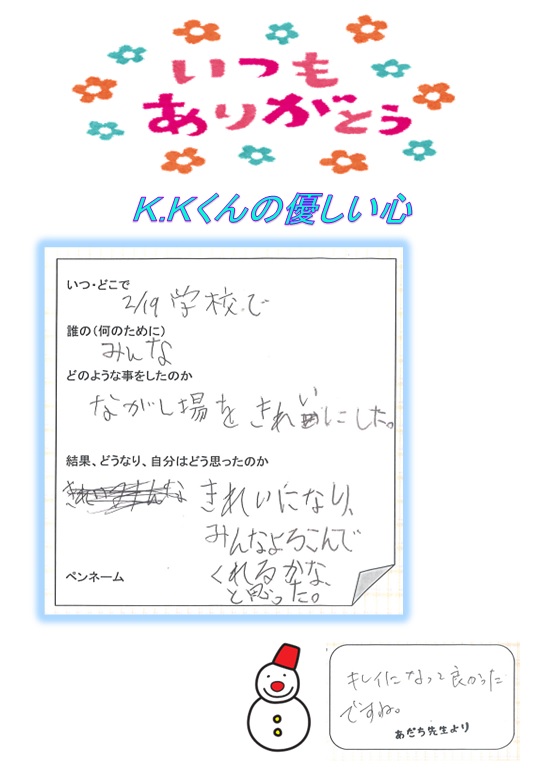 いつも
ありがとう
K.Kくんの優しい心
いつ・どこで
2/19 学校で
誰の(何のために)
みんな
どのような事をしたのか
ながし場をきれいにした。
結果、どうなり、自分はどう思ったのか
きれいになり、
みんなよろこんで
くれるかな、
と思った。
ペンネーム
キレイになって良かった
ですね。
あだち先生より